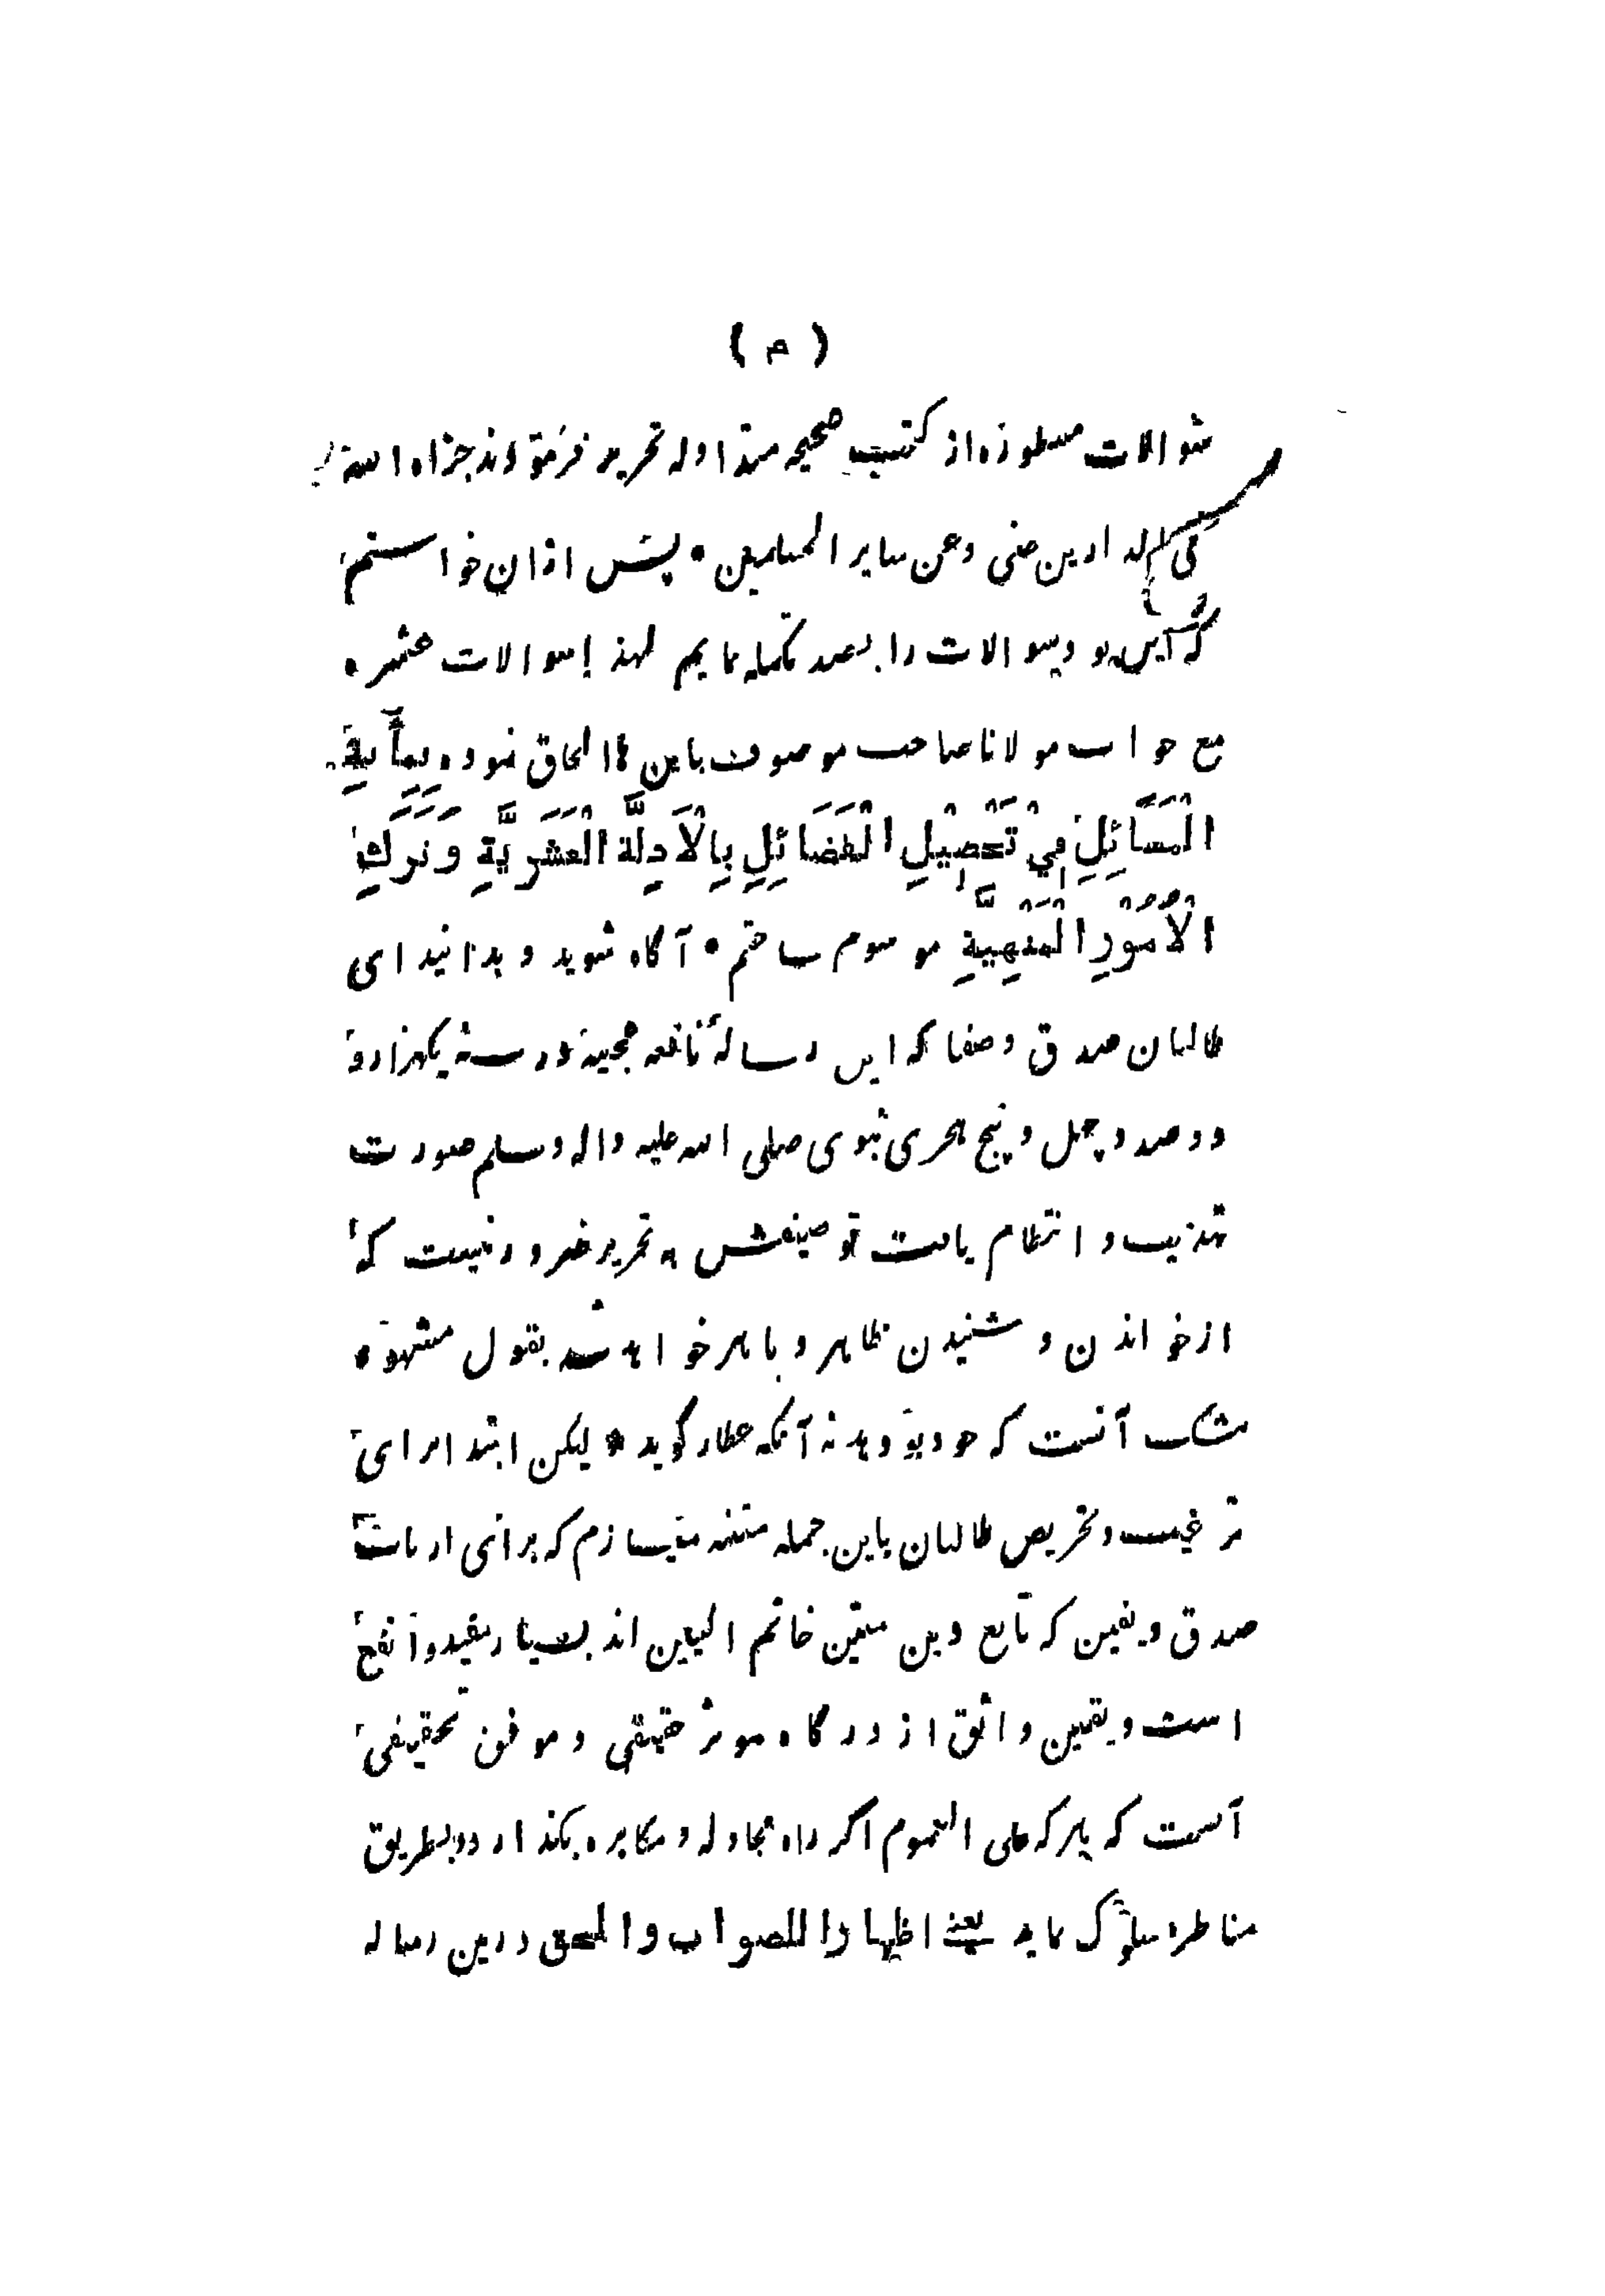 ( م )
سوالات مسطوره از کتب صحیحه متداوله تحریر فرموده اند جزاه الله
فی الدارین عنی وعن سایر المسلمین • پس ازان خواستم
که این نود سوالات را بصد تکمله نمایم لهذا سوالات عشره
مع جواب مولانا صاحب موصوف باین ها الحاق نموده بِمِأَیةِ
الْمَسَائِلِ فِيْ تَحْصِيْلِ الْفَضَائِلِ بِالْاَدِلَّةِ الْعَشَرِيَّةِ وَتَرْكِ
الْاُمُوْرِ الْمَنْهِيَّةِ موسوم ساختم • آگاه شوید و بدانید ای
طالبان صدق و صفا که این رسالهٔ نافعه عجیبه در سنه یکهزار و
دوصد و چهل و پنج هجری نبوی صلی الله علیه واله وسلم صورت
تهذیب و انتظام یافت توصیفش بتحریر ضرور نیست که
از خواندن و شنیدن ظاهر و باهر خواهد شد بقول مشهور •
مشک آنست که خود ببوید نه آنکه عطار گوید * لیکن ابتدا برای
ترغیب و تحریص طالبان باین جمله متنبه میسازم که برای ارباب
صدق و یقین که تابع دین متین خاتم النبیین اند بسیار مفید و انفع
است و یقین واثق از درگاه موثر حقیقی و موفق تحقیقی
آنست که هر که علی العموم اگر راه مجادله و مکابره بگذارد و بطریق
مناظره سلوک نماید یعنے اظهارا للصواب والحق درین رساله